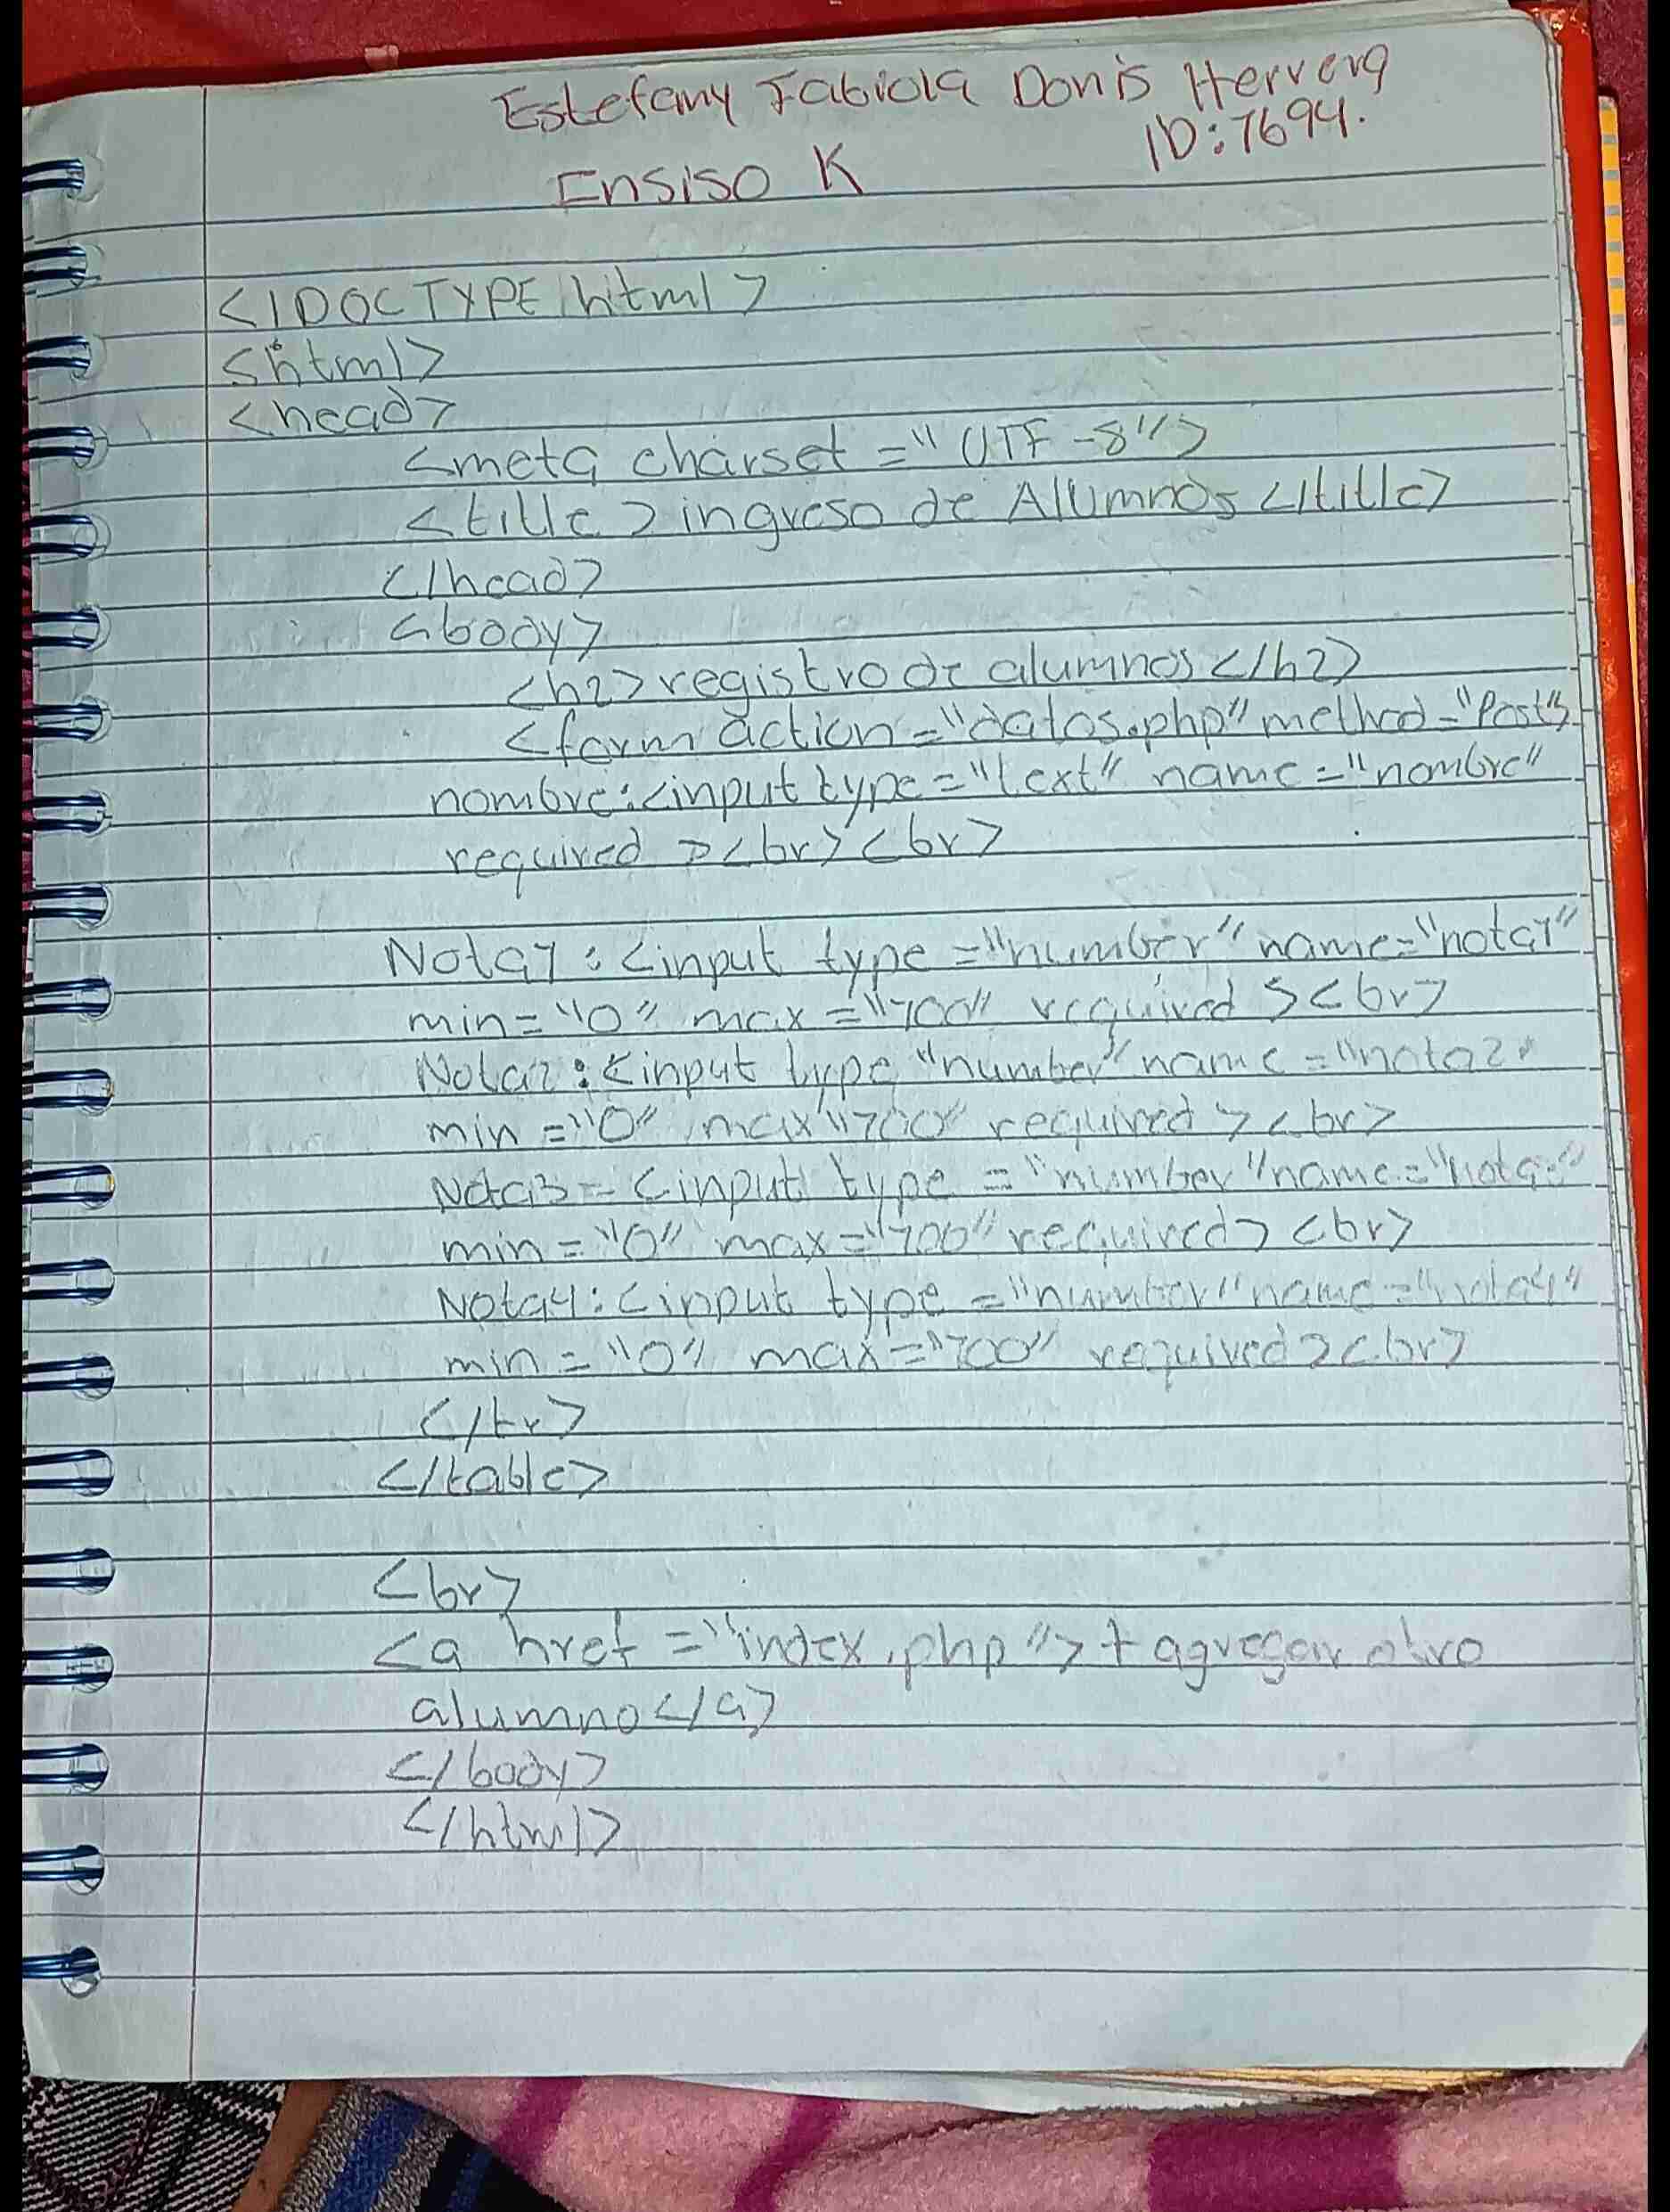 Estefany Fabiola Donis Herrera
ID:7694.
Ensiso K
<!DOCTYPE html>
<html>
<head>
<meta charset="UTF-8">
<title>ingreso de Alumnos</title>
</head>
<body>
<h2>registro de alumnos</h2>
<form action="datos.php" method="Post">
nombre:<input type="text" name="nombre"
required><br><br>
Nota1:<input type="number" name="nota1"
min="0" max="100" required><br>
Nota2:<input type "number" name="nota2"
min="0" max "100" required><br>
Nota3-<input type="number" name=
min="0" max="100" required><br>
Nota4:<input type="number" name="nota4"
min="0" max="100" required><br>
</tr>
</table>
<br>
<a href="index.php">+ agregar otro
alumno</a>
</body>
</html>